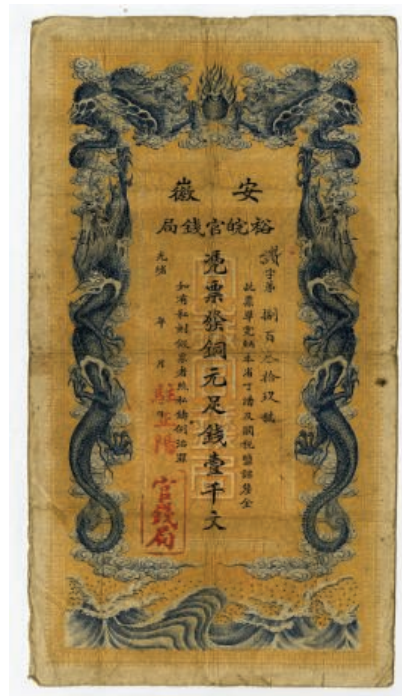 安徽
裕皖官錢局
讚字第捌百叁拾玖號
此票準完納本省丁漕及關稅鹽課釐金
憑票發銅元足錢壹千文
如有私刻假票者照私鑄例治罪
光緒 年 月
駐正陽
官錢局